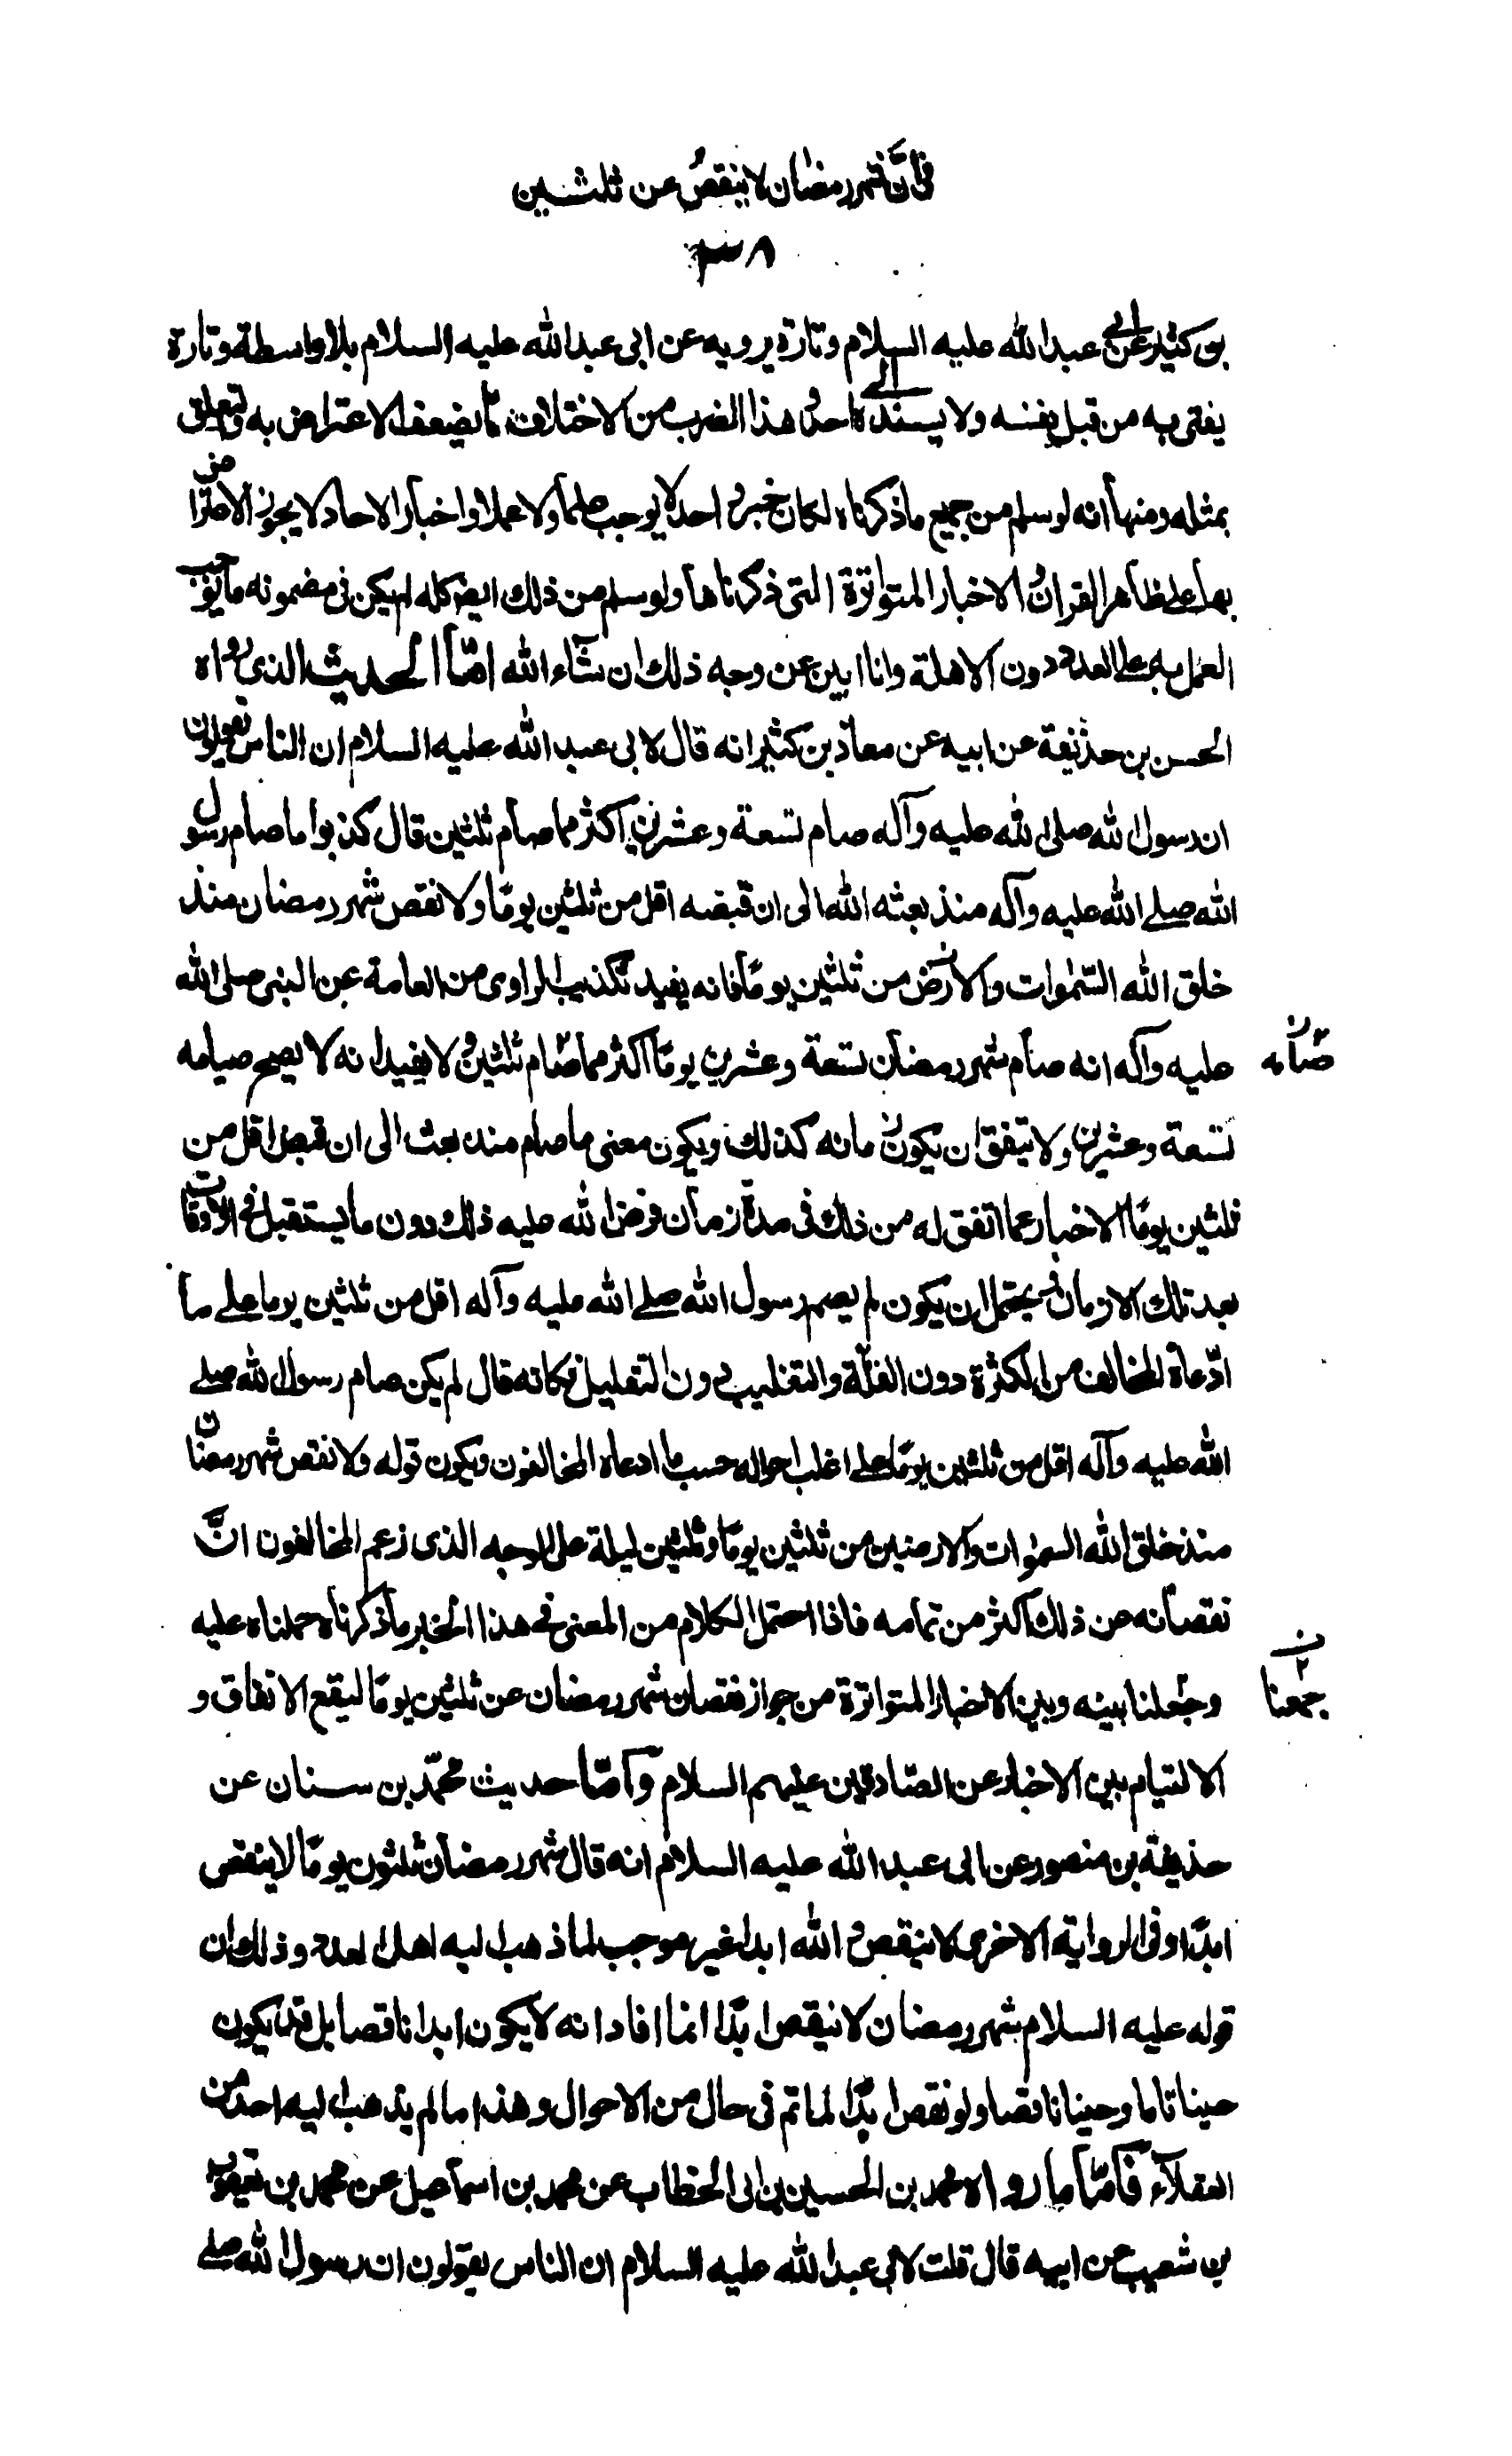 في ان شهر رمضان لا ينقص عن ثلثين
٣٨
بن كثير عن ابي عبدالله عليه السلام وتارة يرويه عن ابى عبدالله عليه السلام بلا واسطة وتارة
يفتى به من قبل نفسه ولا يسنده الى احد وهذا الضرب من الاختلاف مما يضعف الاعتراض به والتعلق
بمثله ومنها انه لو سلم من جميع ما ذكرناه لكان خبر واحد لا يوجب علما ولا عملا واخبار الاحاد لا يجوز الاعتراض
بها على ظاهر القران والاخبار المتواترة التى ذكرناها ولو سلم من ذلك ايضا كله لم يكن فى مضمونه ما يوجب
العمل به على العدد دون الاهلة وانا ابين عن وجه ذلك ان شاء الله امّا الحديث الذى رواه
الحسن بن حذيفة عن ابيه عن معاذ بن كثير انه قال لابى عبد الله عليه السلام ان الناس يقولون
ان رسول الله صلى الله عليه وآله صام تسعة وعشرين اكثر مما صام ثلثين قال كذبوا ما صام رسول
الله صلى الله عليه وآله منذ بعثه الله الى ان قبضه اقل من ثلثين يومًا ولا نقص شهر رمضان منذ
خلق الله السّمٰوات والارض من ثلثين يومًا فانه يفيد تكذيب الراوى من العامة عن النبى صلى الله
عليه وآله انه صام شهر رمضان تسعة وعشرين يومًا اكثر مما صام ثلثين ولا يفيد انه لا يصح صيامه
صيامه
تسعة وعشرين ولا يتفق ان يكون زمانه كذلك ويكون معنى ما صام منذ بعث الى ان قبض اقل من
ثلثين يومًا الاخبار عما اتفق له من ذلك فى مدة زمان فرض الله عليه ذلك دون ما يستقبل فى الاوقات
بعد تلك الازمان ويحتمل ان يكون لم يصم رسول الله صلى الله عليه وآله اقل من ثلثين يوما على ما
ادّعاه المخالف من الكثرة دون القلّة والتغليب دون التقليل فكانه قال لم يكن صام رسول الله صلى
الله عليه وآله اقل من ثلثين يومًا على اغلب احواله حسب ما ادعاه المخالفون ويكون قوله ولا نقص شهر رمضان
منذ خلق الله السمٰوات والارضين من ثلثين يومًا وثلثين ليلة على الوجه الذى زعم المخالفون انّ
نقصانه عن ذلك اكثر من تمامه فاذا احتمل الكلام من المعنى فى هذا الخبر ما ذكرناه حملناه عليه
وجعلنا بينه وبين الاخبار المتواترة من جواز نقصان شهر رمضان عن ثلثين يومًا ليقع الاتفاق و
جمعنا
الالتيام بين الاخبار عن الصّادقين عليهم السلام وَامّا حديث محمّد بن سنان عن
حذيفة بن منصور عن ابى عبدالله عليه السلام انه قال شهر رمضان ثلثون يومًا لا ينقص
ابدًا وفى الرواية الاخرى لا ينقص والله ابدا غير موجب لما ذهب اليه اهل العدد وذلك ان
قوله عليه السلام شهر رمضان لا ينقص ابدًا انما افاد انه لا يكون ابدا ناقصا بل قد يكون
حينا تاما وحينا ناقصا ولو نقص ابدًا لما تم فى حال من الاحوال وهذا ما لم يذهب اليه احد من
العقلاء فامّا ما رواه محمد بن الحسين بن ابى الخطاب عن محمد بن اسماعيل عن محمد بن يعقوب
بن شعيب عن ابيه قال قلت لابى عبدالله عليه السلام ان الناس يقولون ان رسول الله صلى